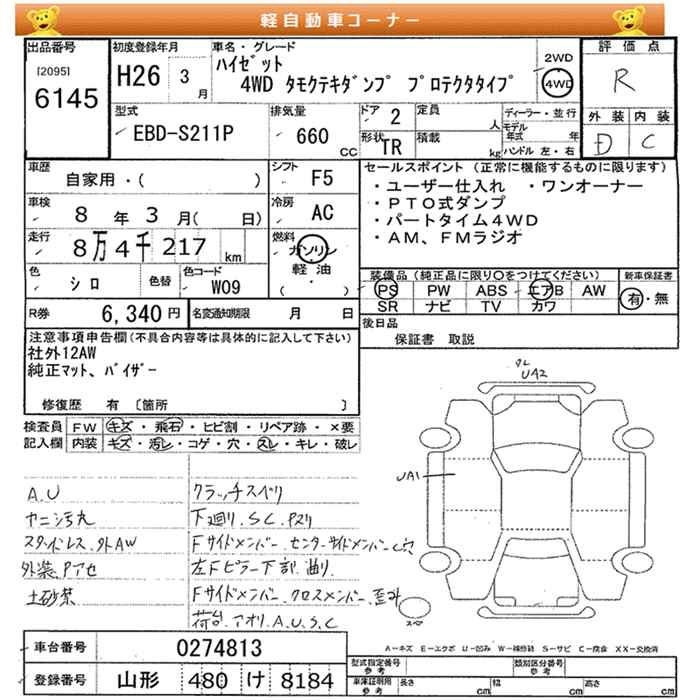 軽自動車コーナー
出品番号
[2095]
6145
初度登録年月
H26 3 月
車名・グレード
ハイゼット
4WD タモクテキダンプ プロテクタタイプ
2WD
4WD
評価点
R
外装 内装
D C
型式
EBD-S211P
排気量
660 CC
ドア 2
定員 人
形状 TR
積載 kg
ディーラー・並行
モデル年式 年
ハンドル 左・右
車歴
自家用・( )
シフト F5
車検
8 年 3 月( 日)
冷房 AC
走行
8万4千217 km
燃料
ガソリン
軽油
( ・ )
色
シロ
色替
色コード
W09
R券 6,340 円
名変通知期限 月 日
セールスポイント (正常に機能するものに限ります)
・ユーザー仕入れ ・ワンオーナー
・PTO式ダンプ
・パートタイム4WD
・AM、FMラジオ
装備品(純正品に限り○をつけてください)
PS PW ABS エアB AW
SR ナビ TV カワ
新車保証書
有・無
後日品
保証書 取説
注意事項申告欄(不具合内容等は具体的に記入して下さい)
社外12AW
純正マット、バイザー
修復歴 有 〔箇所 〕
検査員
記入欄
FW キズ・飛石・ヒビ割・リペア跡・×要
内装 キズ・汚レ・コゲ・穴・スレ・キレ・破レ
A.U
ヤニ汚れ
スタッドレス.外AW
外装.Pアセ
土砂禁
クラッチスベリ
下廻り.S.C.Pヌリ
Fサイドメンバー.センターサイドメンバーC穴
左Fピラー下部.曲り.
Fサイドメンバー.クロスメンバー.歪み
荷台.アオリ.A.U.S.C
UA2
UA1
スペア
A-キズ E-エクボ U-凹み W-補修跡 S-サビ C-腐食 XX-交換済
車台番号 0274813
登録番号 山形 480 け 8184
型式指定番号
参考
類別区分番号
参考
車庫証明用
参考
長さ cm 幅 cm 高さ cm